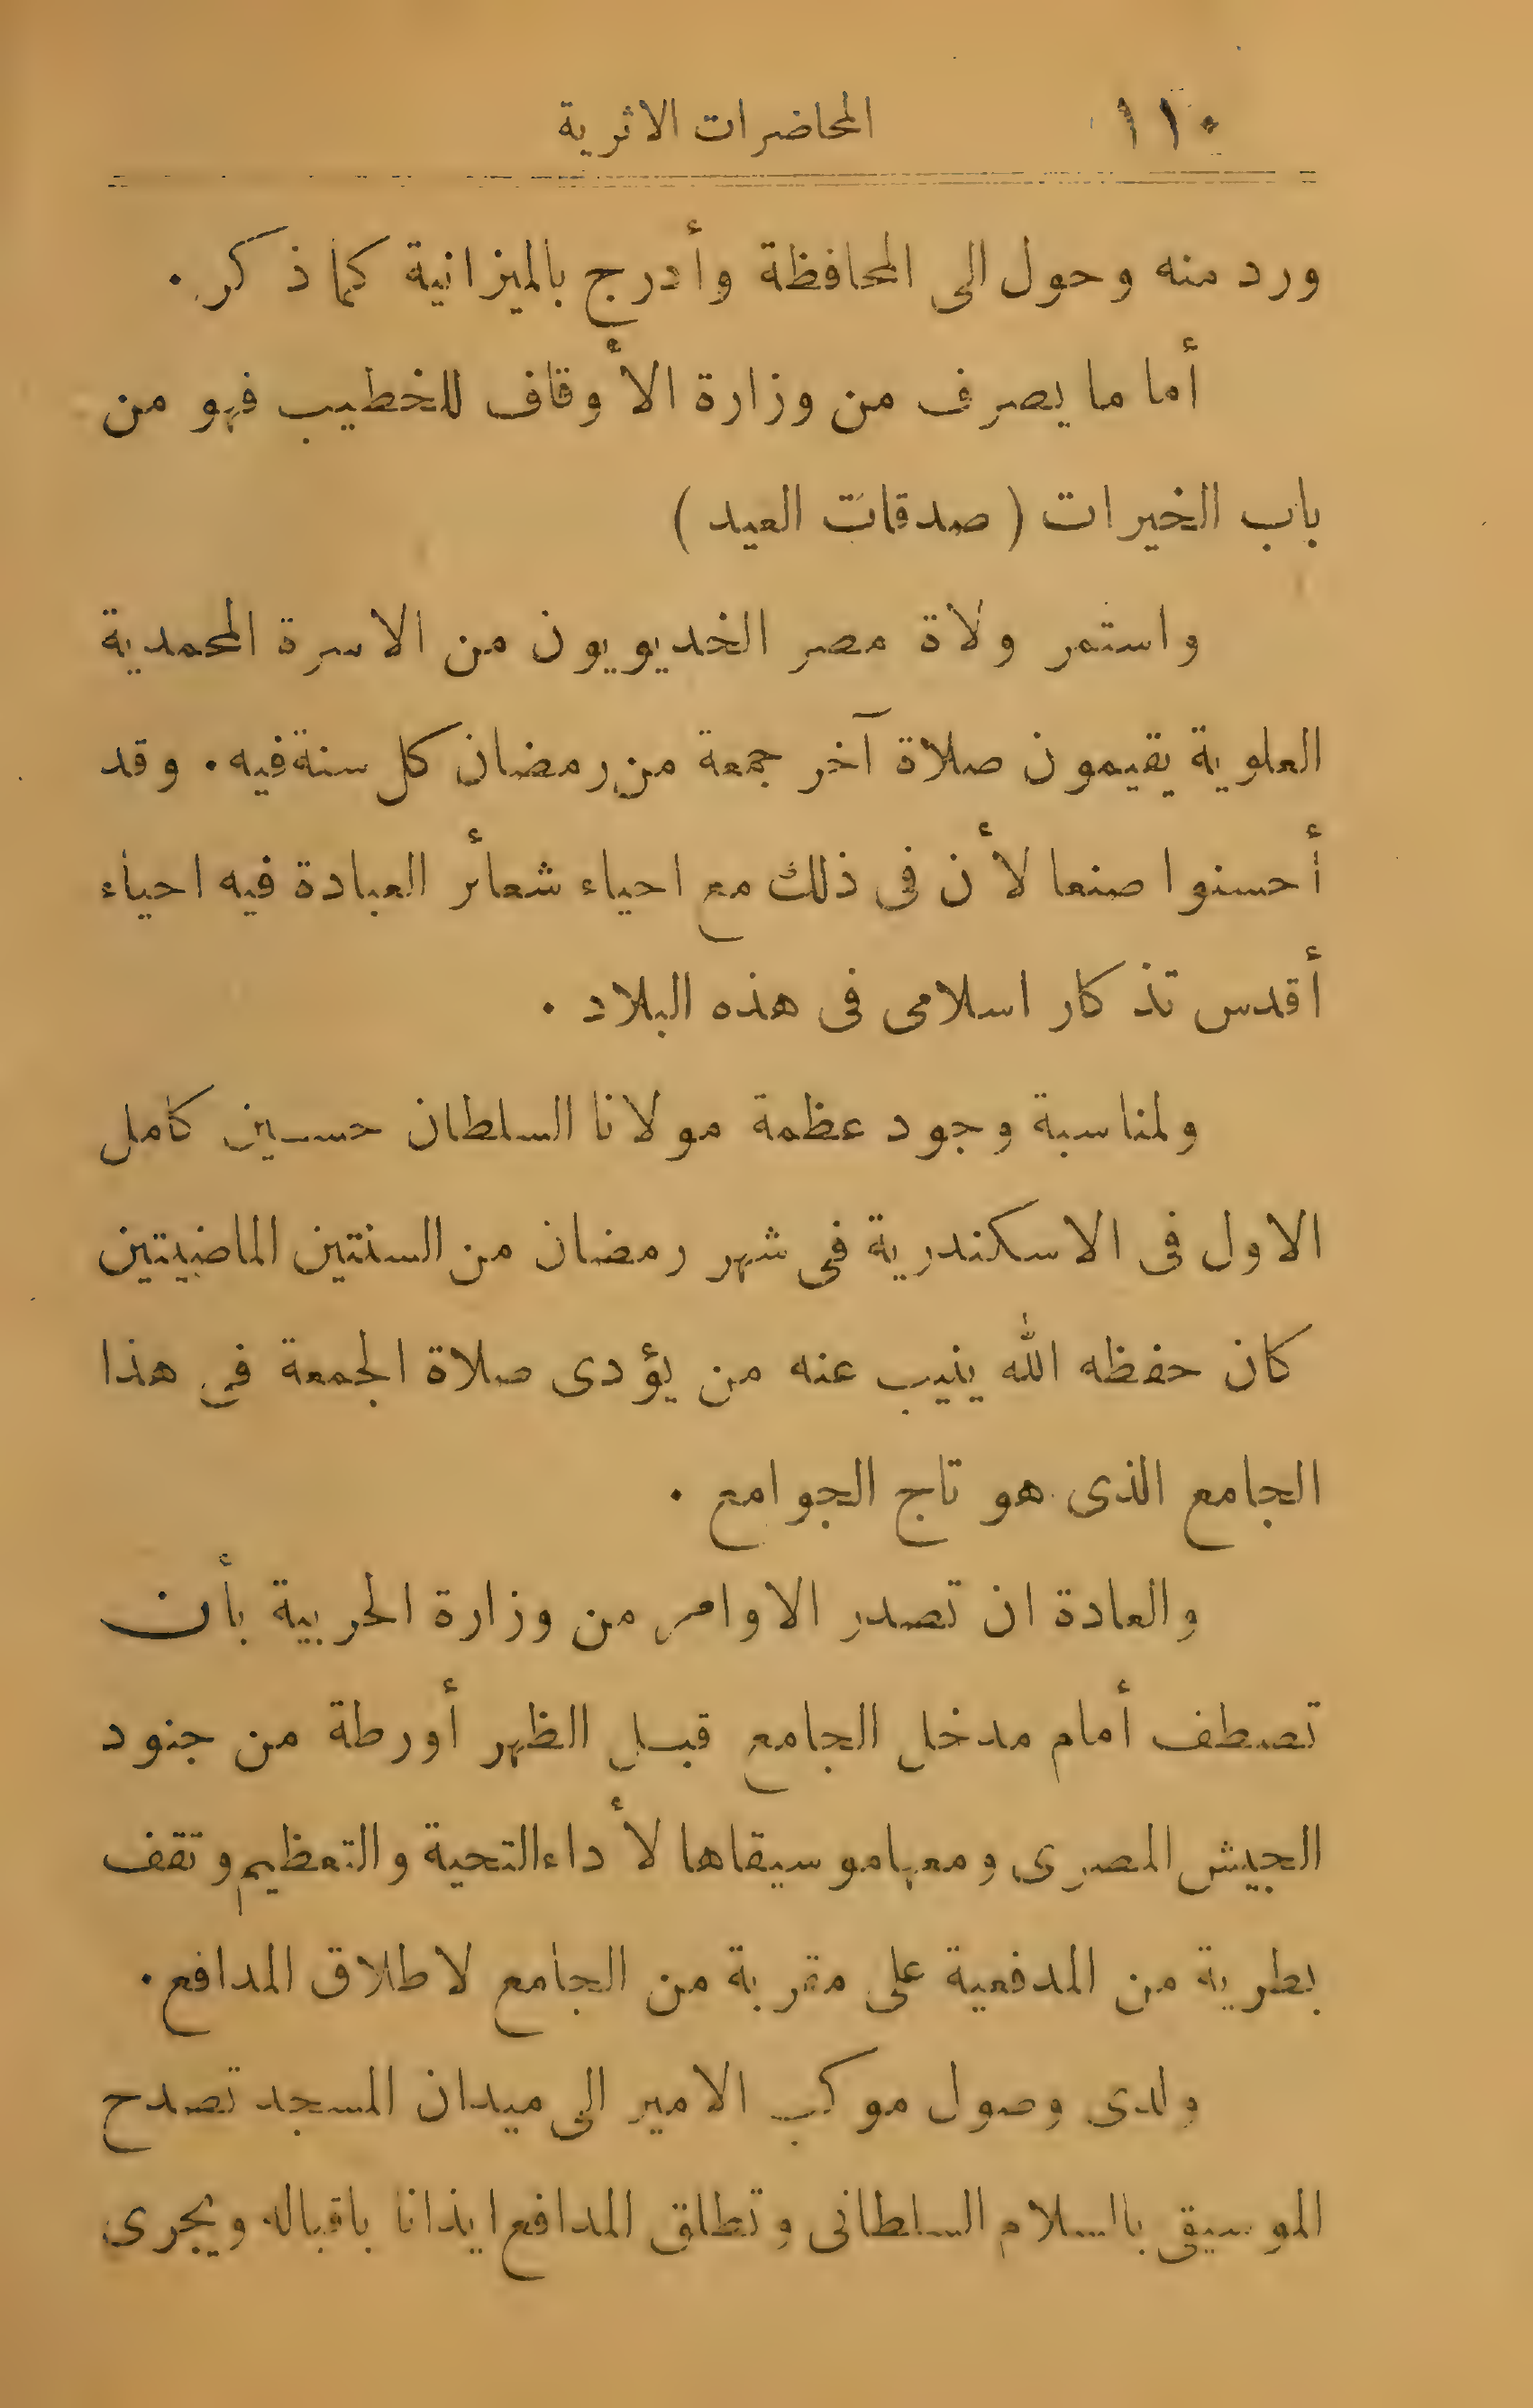 ١١٠ المحاضرات الاثرية
ورد منه وحول الى المحافظة وأدرج بالميزانية كما ذكر.
أما ما يصرف من وزارة الأوقاف للخطيب فهو من
باب الخيرات ( صدقات العيد )
واستمر ولاة مصر الخديويون من الاسرة المحمدية
العلوية يقيمون صلاة آخر جمعة من رمضان كل سنة فيه. وقد
أحسنوا صنعا لأن فى ذلك مع احياء شعأر العبادة فيه احياء
أقدس تذكار اسلامى فى هذه البلاد .
ولمناسبة وجود عظمة مولانا السلطان حسين كامل
الاول فى الاسكندرية فى شهر رمضان من السنتين الماضيتين
كان حفظه الله ينيب عنه من يؤدى صلاة الجمعة فى هذا
الجامع الذى هو تاج الجوامع .
والعادة ان تصدر الاوامر من وزارة الحربية بأن
تصطف أمام مدخل الجامع قبل الظهر أورطة من جنود
الجيش المصرى ومعها موسيقاها لأداء التحية والتعظيم وتقف
بطرية من المدفعية على مقربة من الجامع لاطلاق المدافع.
ولدى وصول موكب الامير الى ميدان المسجد تصدح
الموسيقى بالسلام السلطانى وتطلق المدافع ايذانا باقباله ويجرى